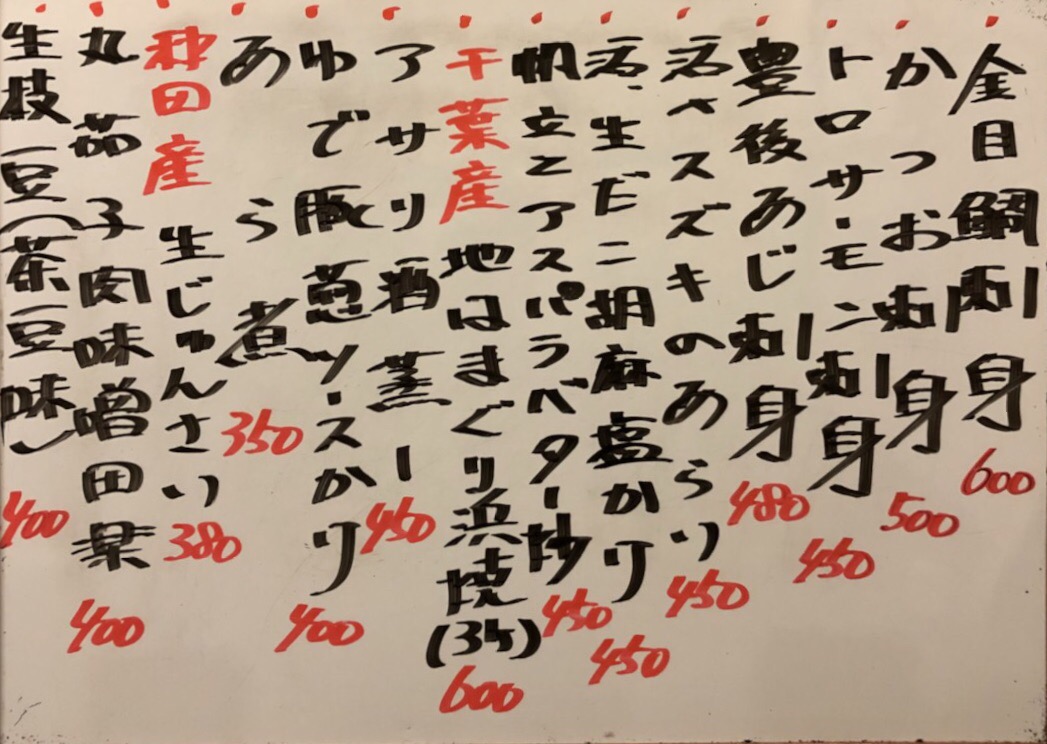 金目鯛刺身 600
かつお刺身 500
トロサーモン刺身 450
豊後あじ刺身 480
活〆スズキのあらい 450
活・生だこ胡麻塩かけ 450
帆立とアスパラバター炒 450
千葉産 地はまぐり浜焼(3ケ) 600
アサリ酒蒸し 450
ゆで豚葱ソースかけ 400
あら煮 350
秋田産 生じゅんさい 380
丸茄子肉味噌田楽 400
生枝豆(茶豆味) 400